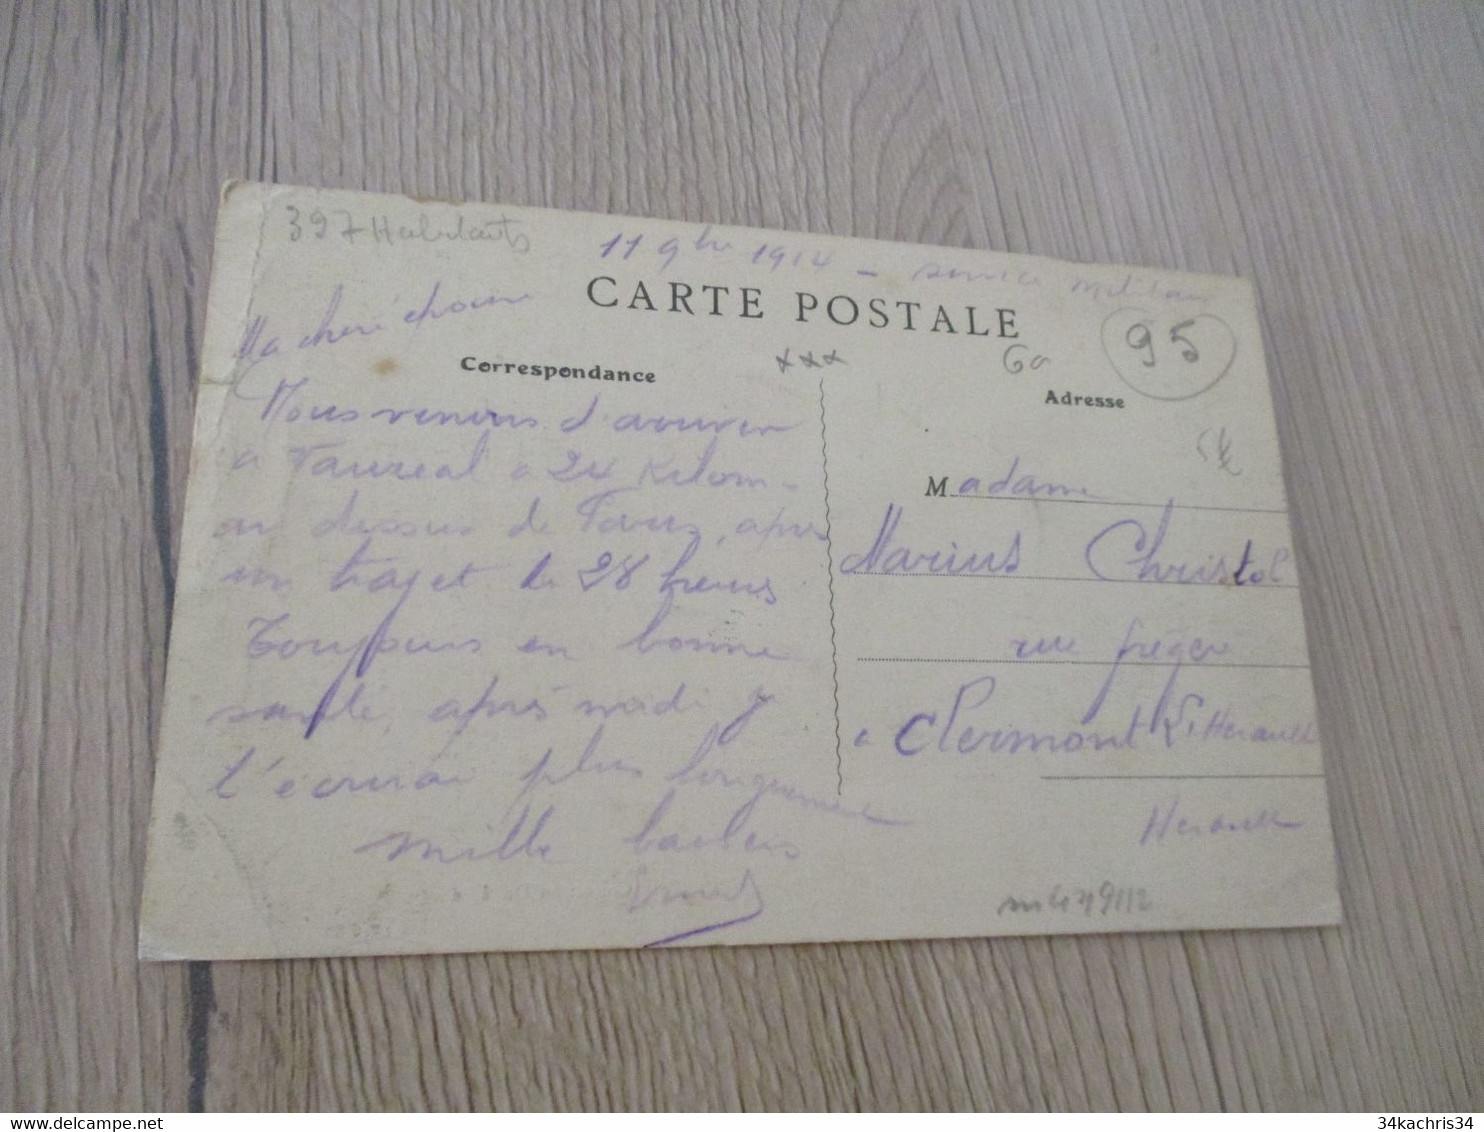 397 Habitants
11 9bre 1914 - service militaire
CARTE POSTALE
Ma cheré épouse
Correspondance
xxx
95
Adresse
Nous venons d'arriver
a Vauréal a 24 kilom-
au dessus de Paris, après
un trajet de 28 heures
Toujours en bonne
santé, après midi je
t'écrirai plus longuement
Mille baisers
Madame
Marius Christol
rue fregere
a Clermont Lt Herault
Herault
34kachris34